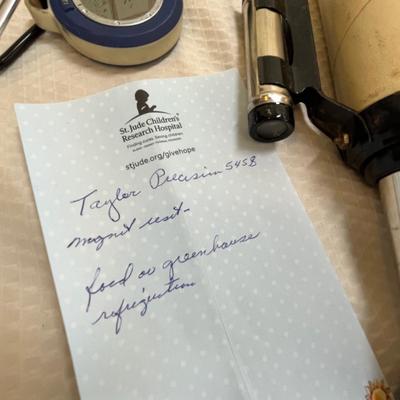 St. Jude Children's
Research Hospital
Finding cures. Saving children.
stjude.org/givehope
Taylor Precision 5458
magnit unit-
food or greenhouse
refrigeration